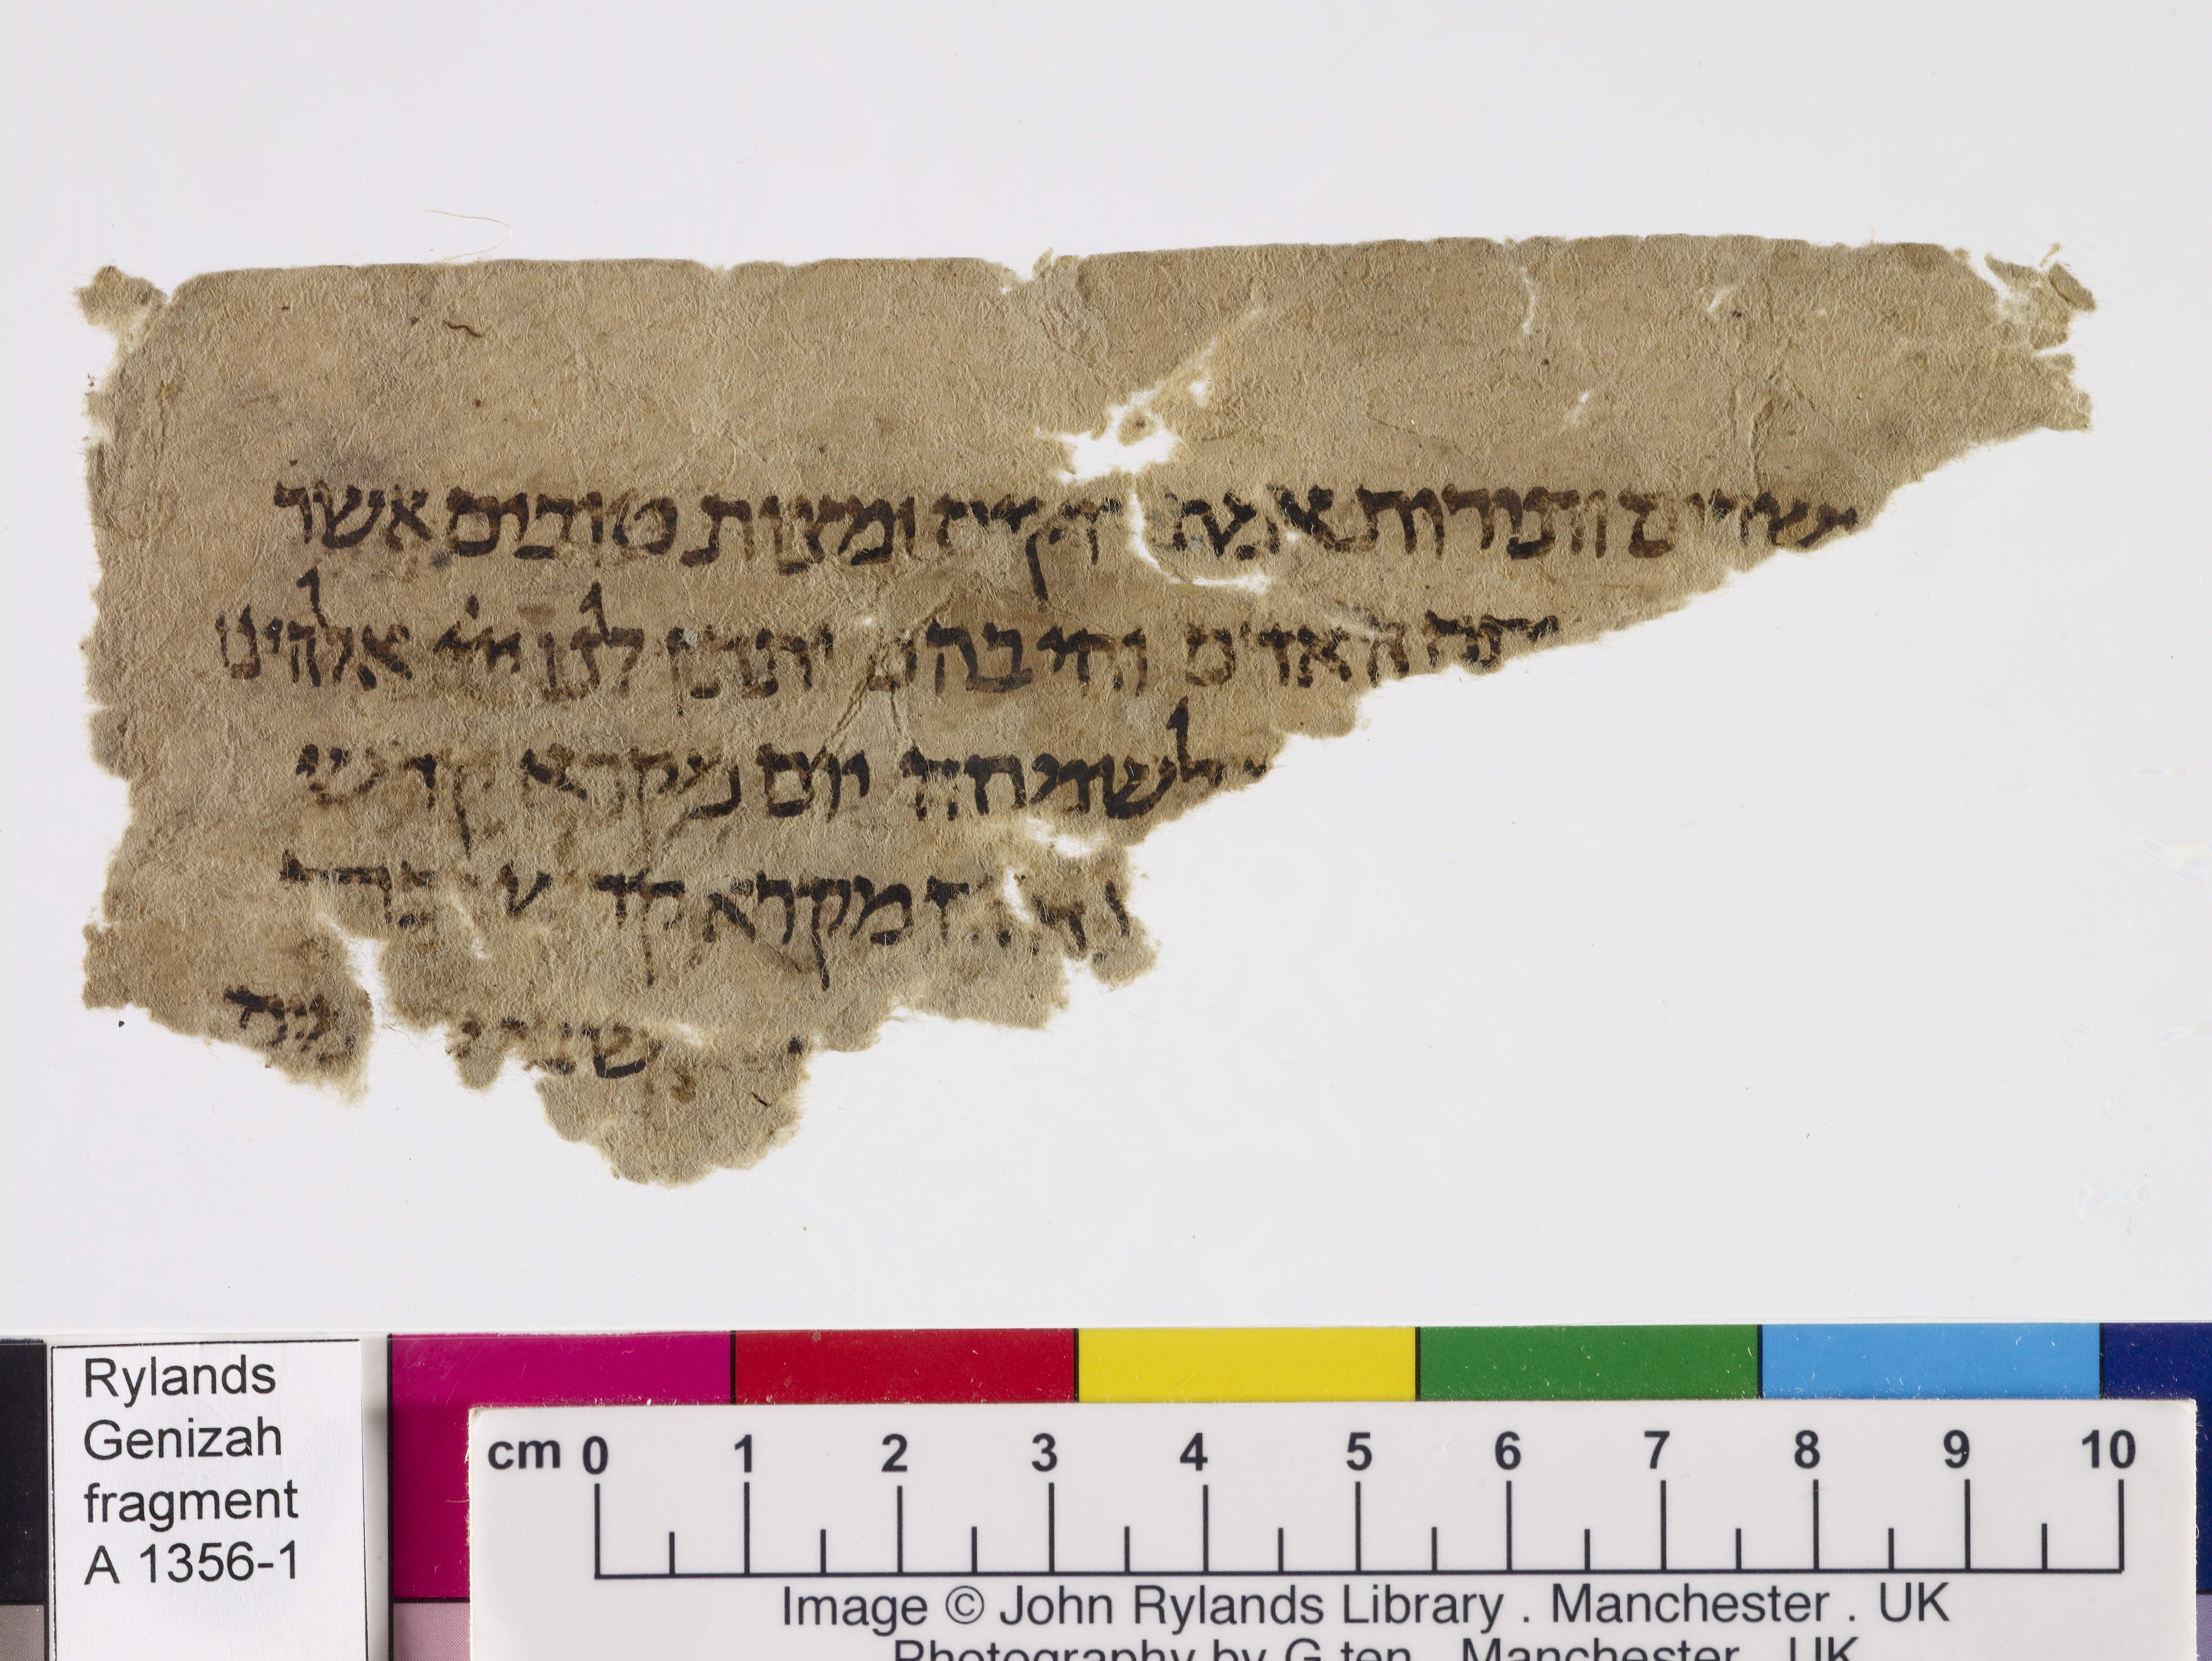 ישרים ותורות אמת חקים ומצות טובים אשר
יעשה האדם וחי בהם ותתן לנו ייי אלהינו
לשמחה יום מקרא קדש
מקרא קדש
Rylands
Genizah
fragment
A 1356-1
cm 0 1 2 3 4 5 6 7 8 9 10
Image © John Rylands Library . Manchester . UK
Photography by G ten . Manchester . UK